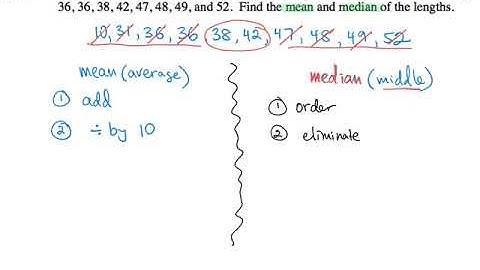 36, 36, 38, 42, 47, 48, 49, and 52. Find the mean and median of the lengths.
10, 31, 36, 36, 38, 42, 47, 48, 49, 52
mean (average)
① add
② ÷ by 10
median (middle)
① order
② eliminate